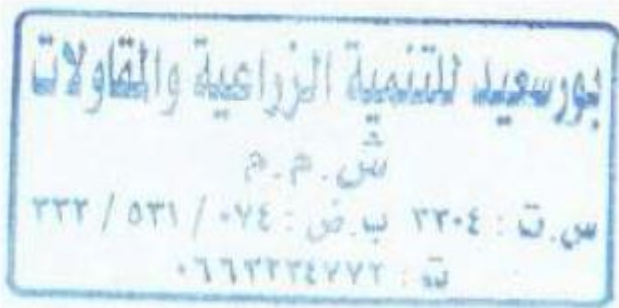 بورسعيد للتنمية الزراعية والمقاولات
ش.م.م
س.ت : ٣٣٠٤ ب.ض : ٠٧٤ / ٥٣١ / ٢٣٢
ت : ٠٦٦٣٢٣٤٧٧٢